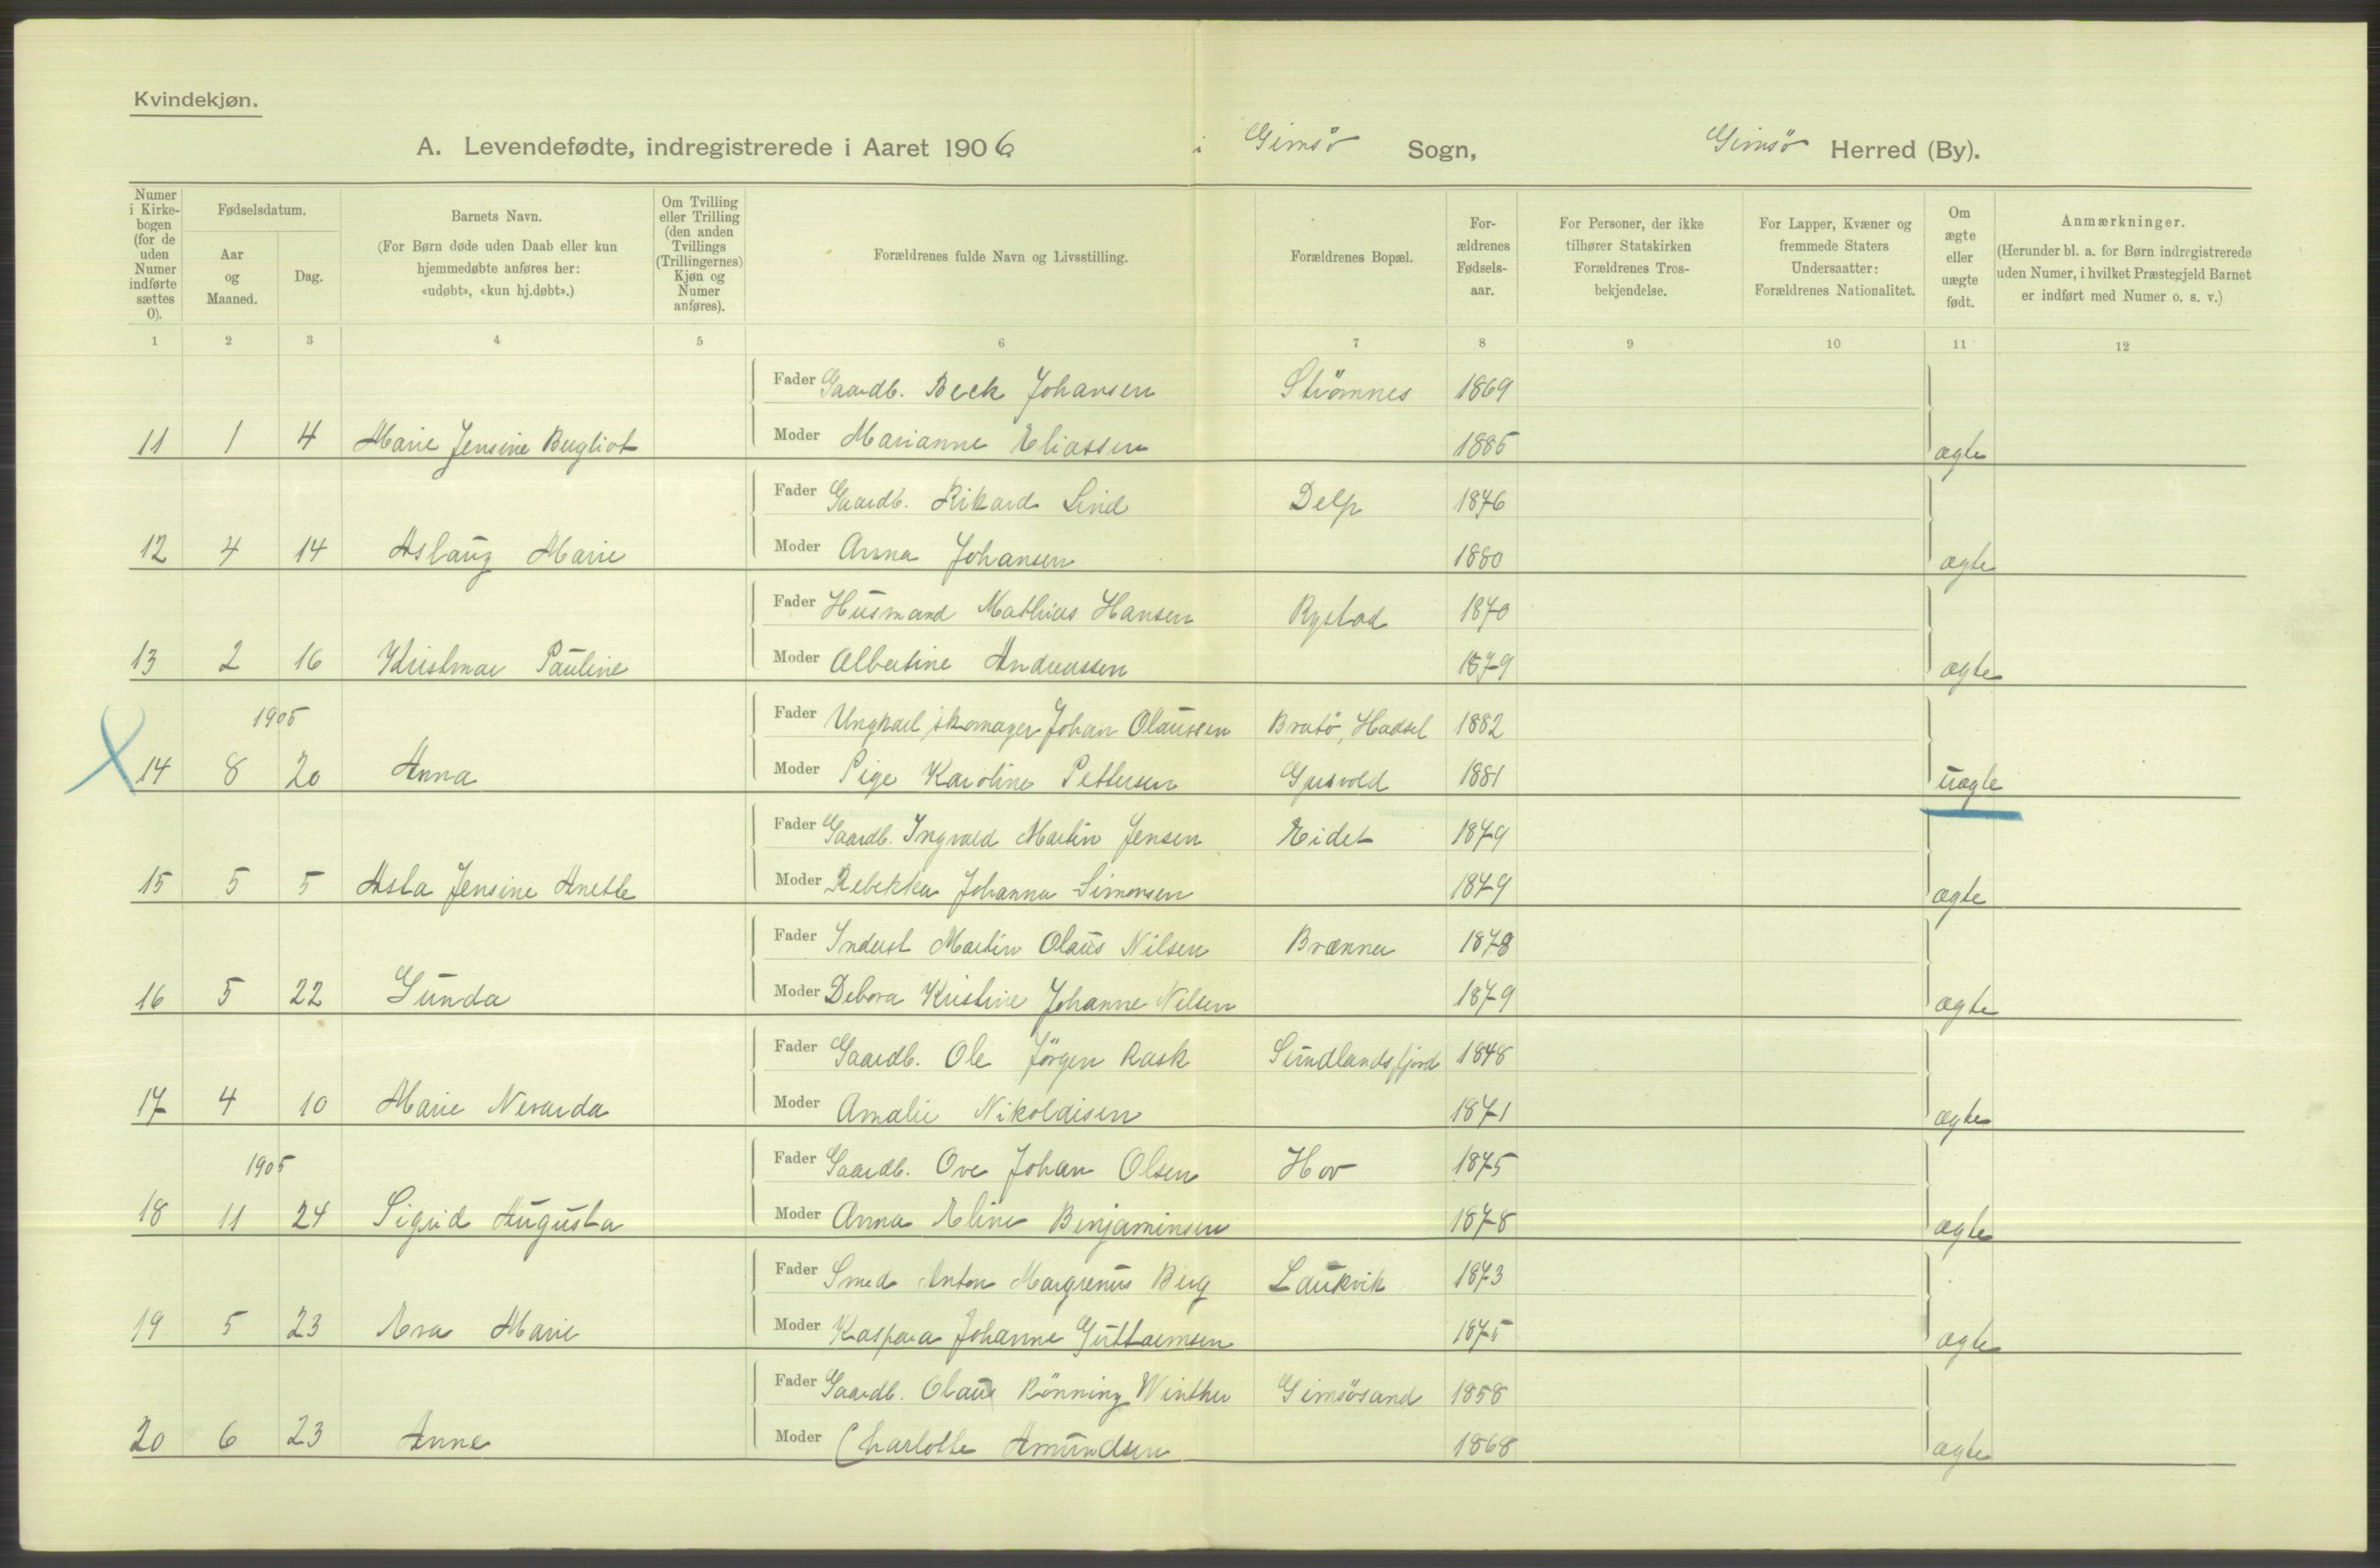 Kvindekjøn.
A. Levendefødte, indregistrerede i Aaret 1906 i Gimsö Sogn, Gimsö Herred (By).
Numer i Kirke-bogen (for de uden Numer indførte sættes 0).
Fødselsdatum.
Aar og Maaned.
Dag.
Barnets Navn.
(For Børn døde uden Daab eller kun hjemmedøbte anføres her: «udøbt», «kun hj.døbt».)
Om Tvilling eller Trilling (den anden Tvillings (Trillingernes) Kjøn og Numer anføres).
Forældrenes fulde Navn og Livsstilling.
Forældrenes Bopæl.
For-ældrenes Fødsels-aar.
For Personer, der ikke tilhører Statskirken Forældrenes Tros-bekjendelse.
For Lapper, Kvæner og fremmede Staters Undersaatter: Forældrenes Nationalitet.
Om ægte eller uægte født.
Anmærkninger.
(Herunder bl. a. for Børn indregistrerede uden Numer, i hvilket Præstegjeld Barnet er indført med Numer o. s. v.)
1 2 3 4 5 6 7 8 9 10 11 12
Fader Gaardb. Beck Johansen Strömnes 1869
11 1 4 Marie Jensine Bergliot Moder Marianne Eliassen 1885 ægte
Fader Gaardb. Rikard Lind Delp 1876
12 4 14 Aslaug Marie Moder Anna Johansen 1880 ægte
Fader Husmand Mathias Hansen Rystad 1870
13 2 16 Kristmar Pauline Moder Albertine Andreassen 1879 ægte
1905 Fader Ungkarl, skomager Johan Olaussen Bratö, Hadsel 1882
14 8 20 Anna Moder Pige Karoline Pettersen 1881 uægte
Fader Gaardb. Ingvald Martin Jensen Eidet 1879
15 5 5 Asta Jensine Anette Moder Rebekka Johanna Simonsen 1879 ægte
Fader Inderst Martin Olaus Nilsen Brænna 1878
16 5 22 Gunda Moder Debora Kristine Johanne Nilsen 1879 ægte
Fader Gaardb. Ole Jörgen Rask Sundlandsfjord 1848
17 4 10 Marie Nevarda Moder Amalie Nikolaisen 1871 ægte
1905 Fader Gaardb. Ove Johan Olsen Hov 1875
18 11 24 Sigrid Augusta Moder Anna Eline Benjaminsen 1878 ægte
Fader Smed Anton Margrenus Berg Laukvik 1873
19 5 23 Eva Marie Moder Kaspara Johanne Guttormsen 1875 ægte
Fader Gaardb. Olaus Rönning Winther Gimsösand 1858
20 6 23 Anne Moder Charlotte Amundsen 1868 ægte